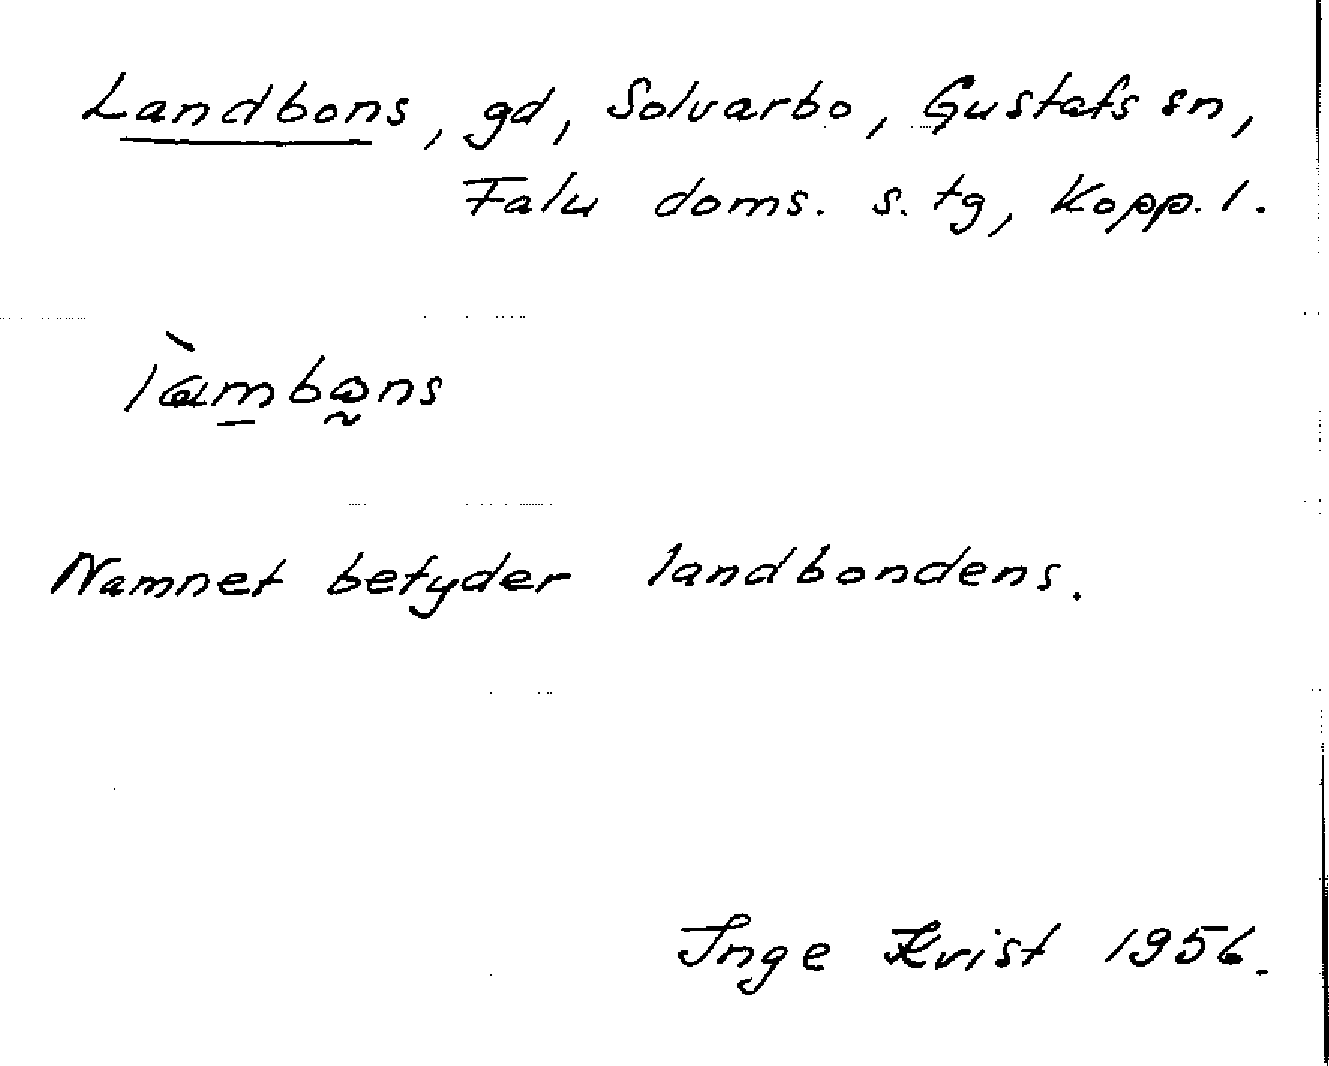 Landbons, gd, Solvarbo, Gustafs sn,
Falu doms. s. tg, Kopp. l.
làmbω̰ns
Namnet betyder landbondens.
Inge Kvist 1956.